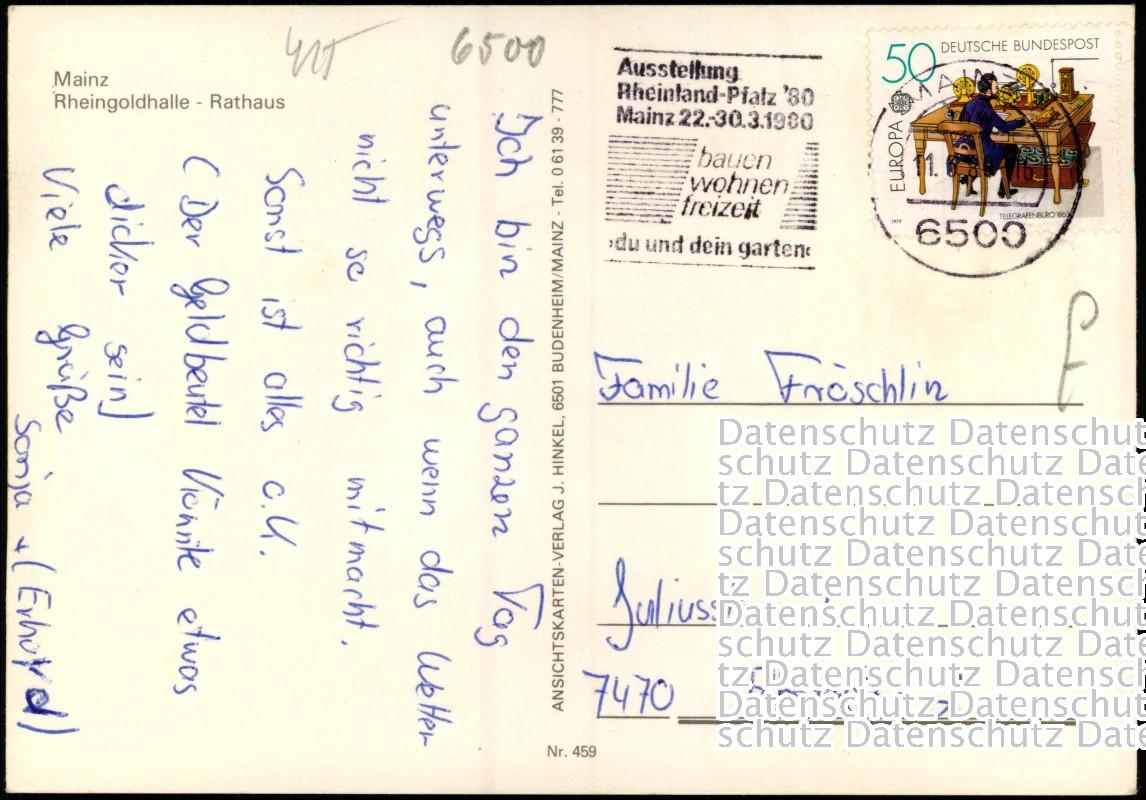 415
6500
Mainz
Rheingoldhalle - Rathaus
Ich bin den ganzen Tag
unterwegs, auch wenn das Wetter
nicht so richtig mitmacht.
Sonst ist alles o.K.
(Der Geldbeutel könnte etwas
dicker sein)
Viele Grüße
Sonja + (Erhard)
ANSICHTSKARTEN-VERLAG J. HINKEL, 6501 BUDENHEIM/MAINZ - Tel. 0 61 39 - 777
Nr. 459
Ausstellung
Rheinland-Pfalz '80
Mainz 22.-30.3.1980
bauen
wohnen
freizeit
›du und dein garten‹
50 DEUTSCHE BUNDESPOST
EUROPA
1979
TELEGRAFENBÜRO 1863
MAINZ
11.
6500
Familie Fröschlin
Datenschutz Datenschut
schutz Datenschutz Date
tz Datenschutz Datensc
Datenschutz Datenschut
schutz Datenschutz Date
tz Datenschutz Datensc
Juliuss
Datenschutz Datenschut
schutz Datenschutz Date
7470
tz Datenschutz Datensc
Datenschutz Datenschut
schutz Datenschutz Date